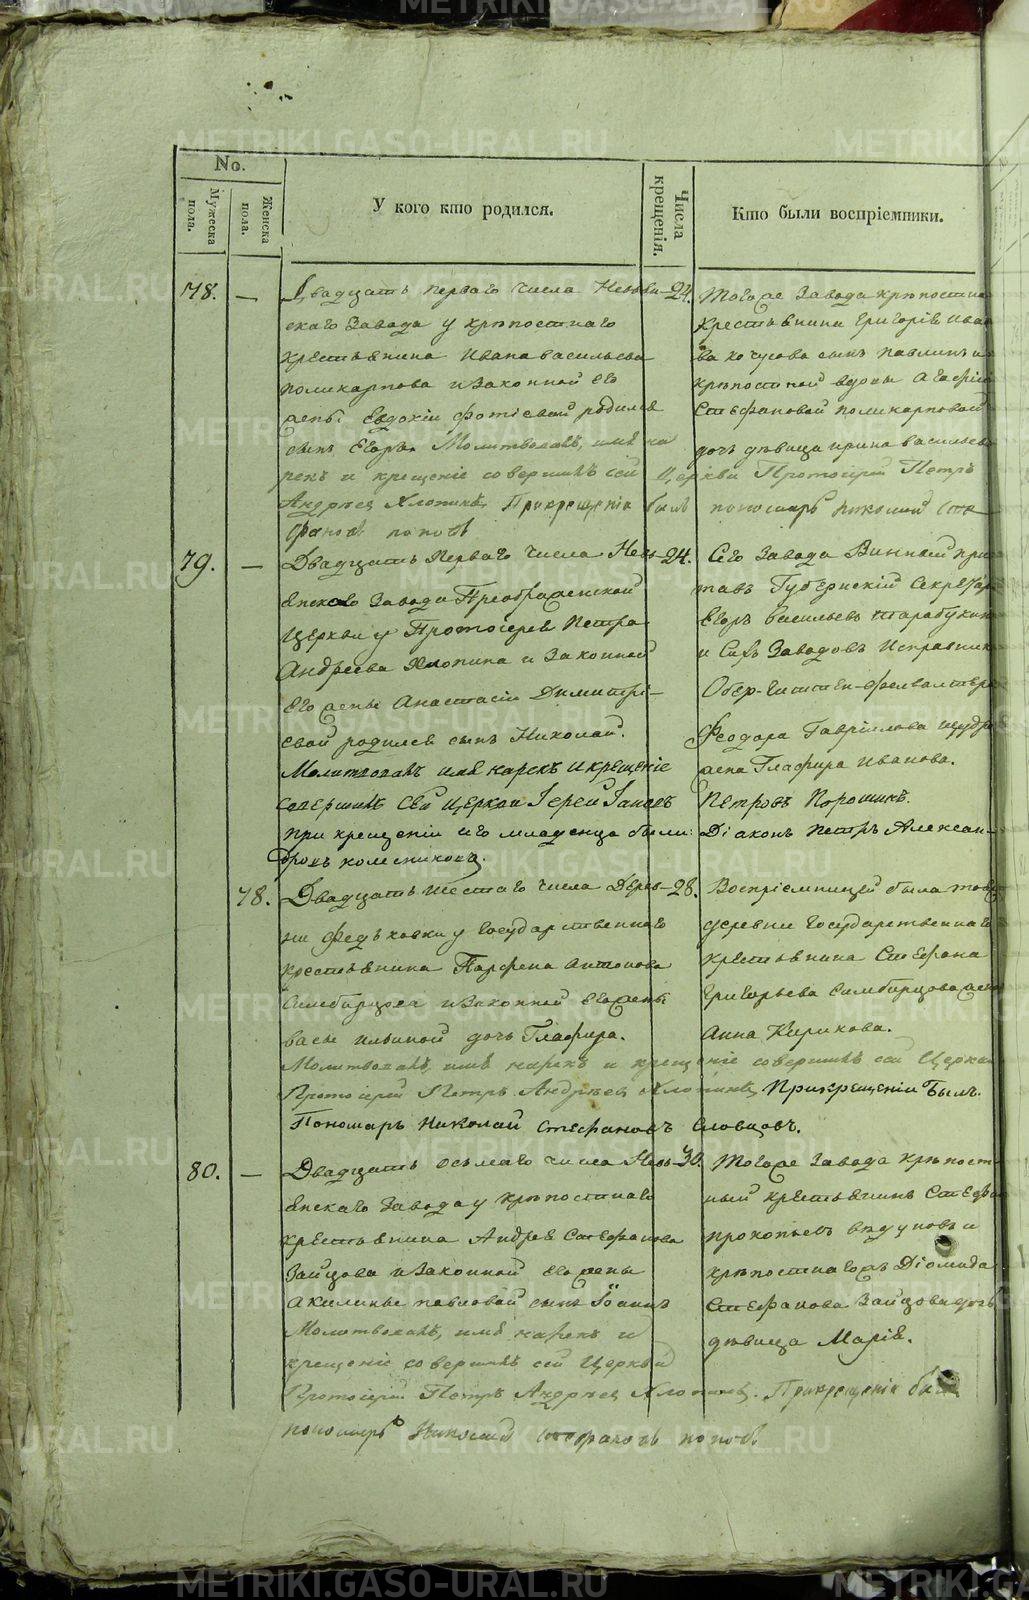 No.
Мужеска пола.
Женска пола.
У кого кто родился.
Числа крещенія.
Кто были воспріемники.
78. —
Двадцать перваго числа Невьян-
скаго Завода у крѣпостнаго
крестьянина Ивана васильева
поликарпова и Законной его
жены Евдокіи Фотіевой родился
сынъ Егоръ. Молитвовалъ, имя на
рекъ и крещеніе совершилъ сей Церкви Протоіерей Петръ
Андрѣев Хлопинъ. При крещеніи былъ пономарь Николай
поповъ
24.
Тогоже Завода крѣпостна
крестьянина Григорія Ива
сынъ павлинъ и
крѣпостной вдовы Агафіи
Стефановой поликарповой
дочь дѣвица ирина васильева
79. —
Двадцать перваго числа Невь-
янскаго Завода Преображенской
Церкви у Протоіерея Петра
Андреева Хлопина и Законной
его жены Анастасіи Димитрі-
евой родился сынъ Николай.
Молитвовалъ имя нарекъ и крещеніе
совершилъ сей церкви Іерей Іаковъ Петровъ Порошинъ.
при крещеніи его младенца были: Діаконъ Петръ Алексан-
дровъ колесниковъ.
24.
Сего Завода Винный при
тавъ Губернскій Секретар
Егоръ Васильевъ тарабукин
и Сихъ Заводовъ Исправник
Обер-Гиттен-Фервалтера
Феодора Гавріилова
жена Глафира Иванова.
78.
Двадцать шестаго числа Дерев-
ни Федьковки у Государственнаго
крестьянина Парфена Антонова
Симбирцова и Законной его жены
васы ильиной дочь Глафира.
Молитвовалъ, имя нарекъ и крещеніе совершилъ сей Церкви
Протоіерей Петръ Андрѣев Хлопинъ. При крещеніи Былъ
Пономарь Николай Стефановъ Словцовъ.
28.
Воспріемницей была тояж
деревни Государственнаго
крестьянина Стефана
Григорьева Симбирцова жена
Анна Кирикова.
80. —
Двадцать осьмаго числа Невь-
янскаго Завода у крѣпостнаго
крестьянина Андрея Стефанова
Зайцова и Законной его жены
Акилины павловой сынъ Іоаннъ
Молитвовалъ, имя нарекъ и
крещеніе совершилъ сей Церкви
Протоіерей Петръ Андрѣев Хлопинъ. При крещеніи былъ
пономарь Николай поповъ
30.
Тогоже Завода крѣпост-
ный крестьянинъ Стефан
прокопьевъ вѣдуновъ и
крѣпостнаго жъ Діомида
Стефанова Зайцова дочь
дѣвица Марія.